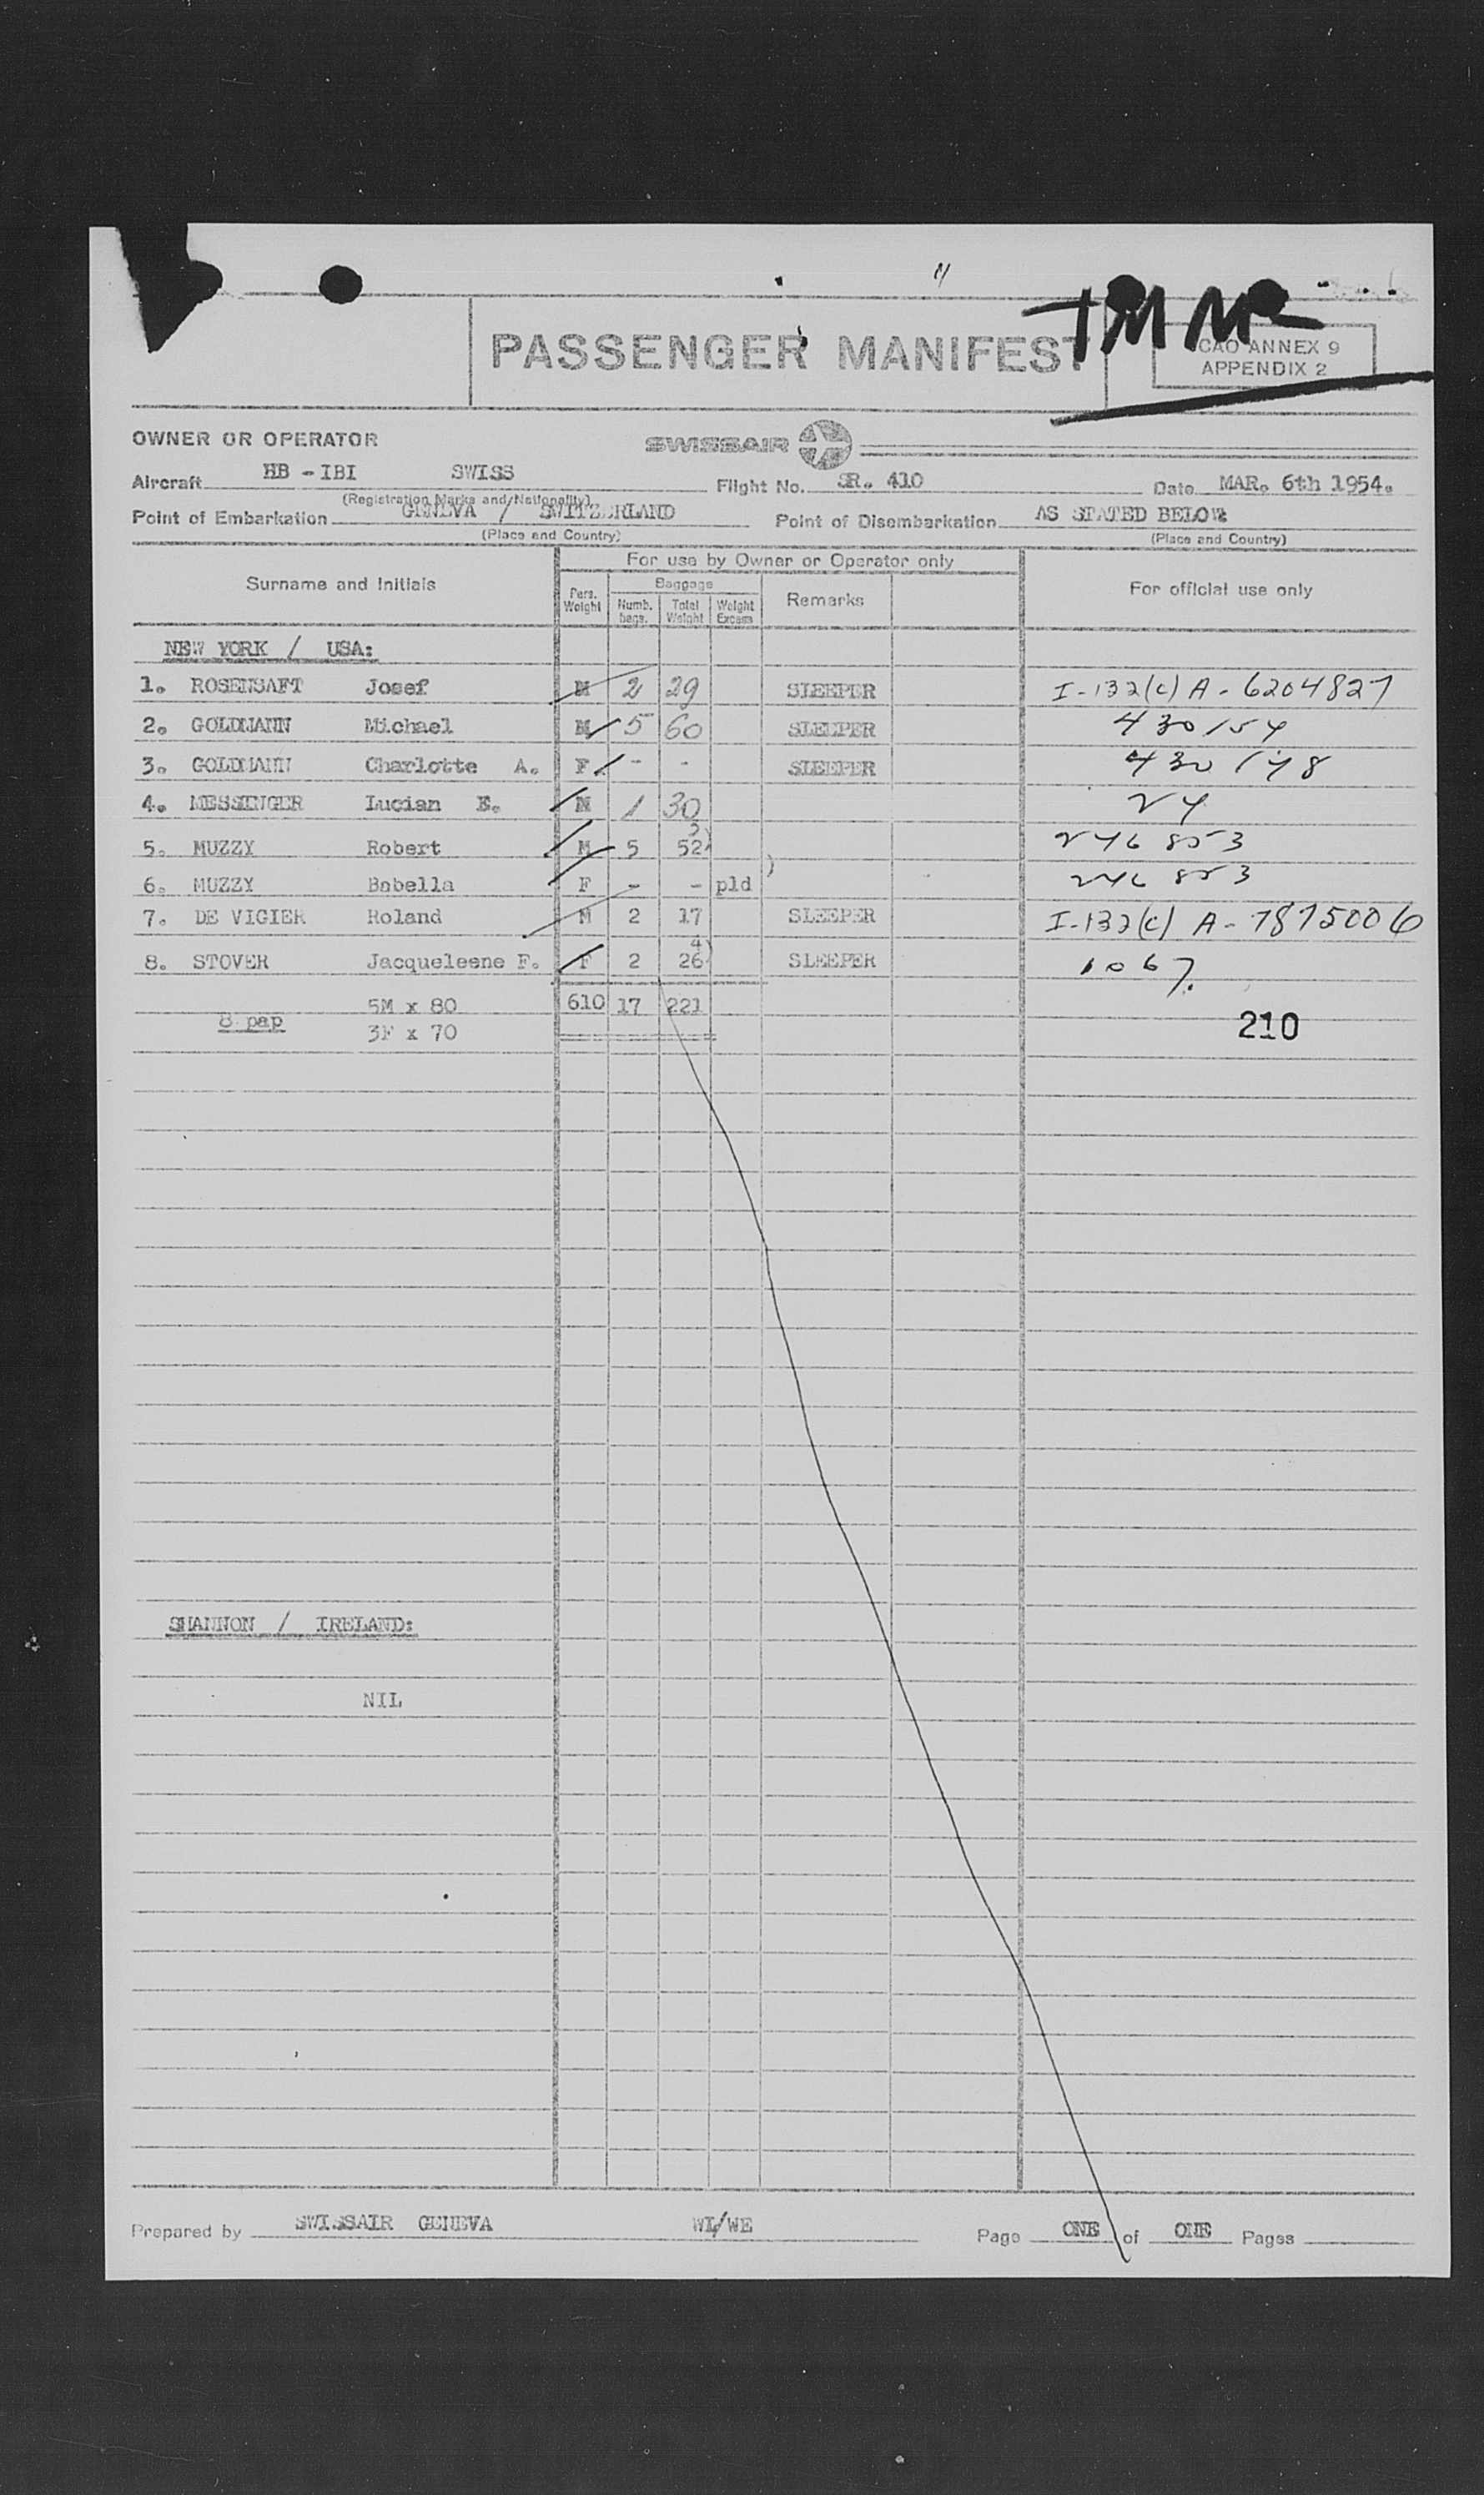 PASSENGER MANIFEST
ICAO ANNEX 9
APPENDIX 2
OWNER OR OPERATOR
SWISSAIR
Aircraft HB - IBI SWISS Flight No. SR. 410 Date MAR. 6th 1954.
(Registration Marks and/Nationality)
Point of Embarkation GENEVA / SWITZERLAND Point of Disembarkation AS STATED BELOW
(Place and Country) (Place and Country)
For use by Owner or Operator only
Surname and Initials Pers. Weight Baggage Numb. bags. Total Weight Weight Excess Remarks For official use only
NEW YORK / USA:
1. ROSENSAFT Josef M 2 29 SLEEPER I-132(c) A-6204827
2. GOLDMANN Michael M 5 60 SLEEPER 430154
3. GOLDMANN Charlotte A. F - - SLEEPER 430148
4. MESSINGER Lucian E. M 1 30 24
5. MUZZY Robert M 5 52) 246853
6. MUZZY Babella F - - pld ) 246853
7. DE VIGIER Roland M 2 17 SLEEPER I-132(c) A-7875006
8. STOVER Jacqueleene F. F 2 26) SLEEPER 1067.
8 pap 5M x 80 610 17 221
3F x 70 210
SHANNON / IRELAND:
NIL
Prepared by SWISSAIR GENEVA WL/WE Page ONE of ONE Pages